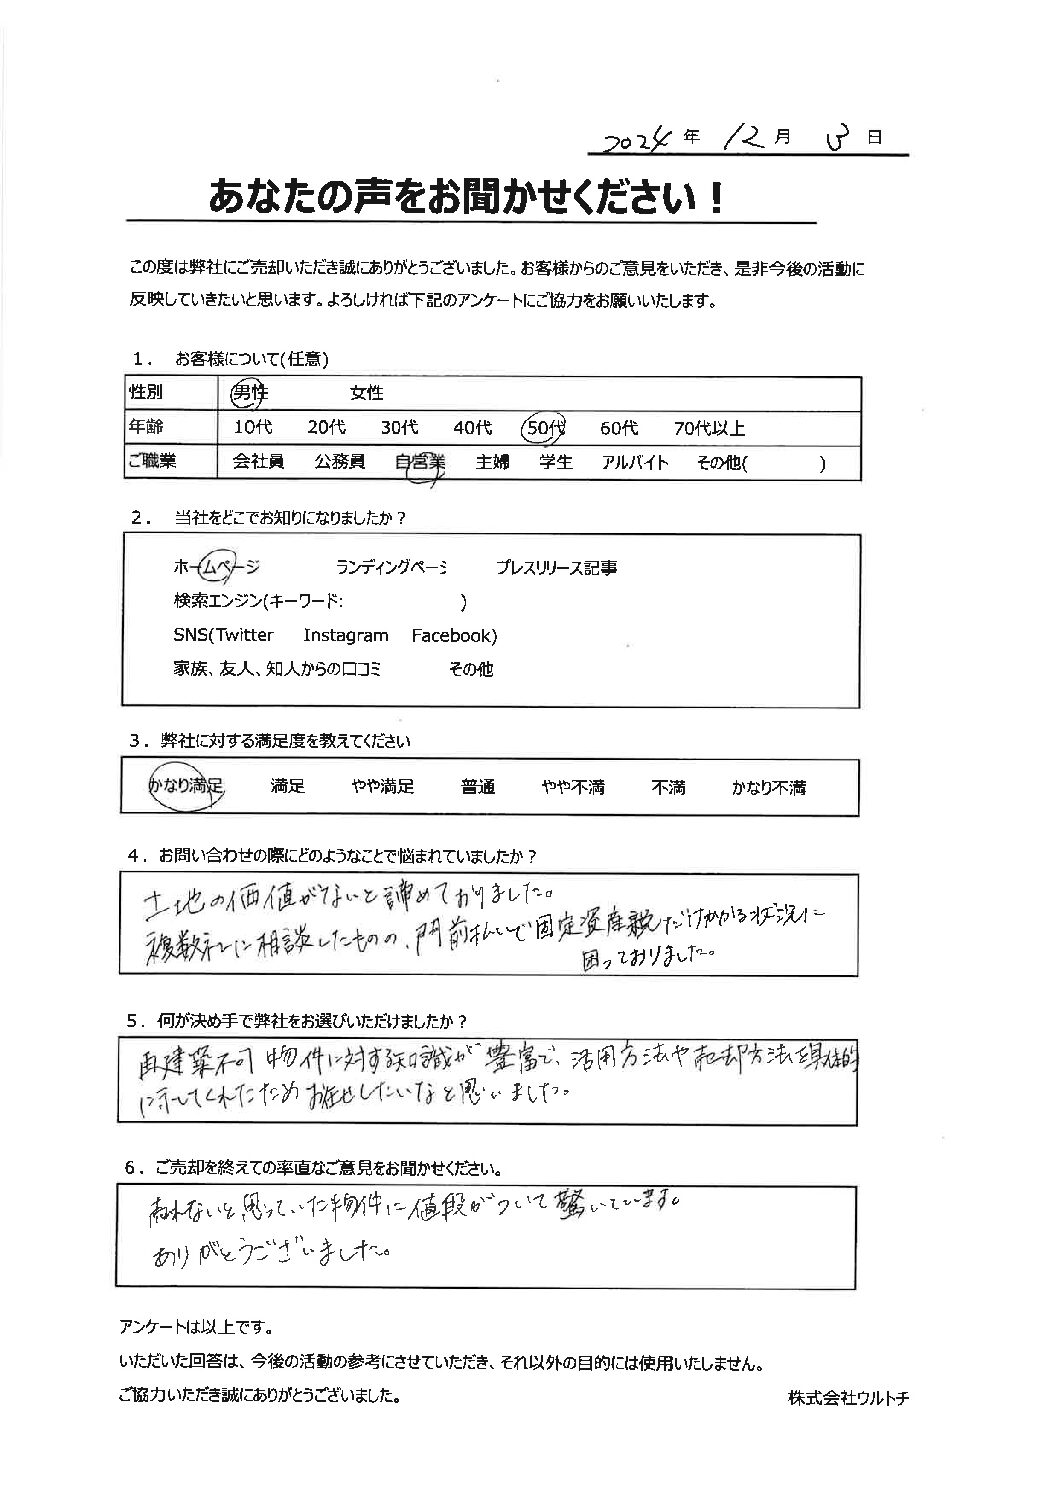 2024年 12月 3日
あなたの声をお聞かせください！
この度は弊社にご売却いただき誠にありがとうございました。お客様からのご意見をいただき、是非今後の活動に
反映していきたいと思います。よろしければ下記のアンケートにご協力をお願いいたします。
1． お客様について(任意)
性別 男性 女性
年齢 10代 20代 30代 40代 50代 60代 70代以上
ご職業 会社員 公務員 自営業 主婦 学生 アルバイト その他( )
2． 当社をどこでお知りになりましたか？
ホームページ ランディングページ プレスリリース記事
検索エンジン(キーワード: )
SNS(Twitter Instagram Facebook)
家族、友人、知人からの口コミ その他
3．弊社に対する満足度を教えてください
かなり満足 満足 やや満足 普通 やや不満 不満 かなり不満
4．お問い合わせの際にどのようなことで悩まれていましたか？
土地の価値がないと諦めておりました。
複数社に相談したものの、門前払いで固定資産税だけかかる状況に
困っておりました。
5．何が決め手で弊社をお選びいただけましたか？
再建築不可物件に対する知識が豊富で、活用方法や売却方法を具体的
に示してくれたためお任せしたいなと思いました。
6．ご売却を終えての率直なご意見をお聞かせください。
売れないと思っていた物件に値段がついて驚いています。
ありがとうございました。
アンケートは以上です。
いただいた回答は、今後の活動の参考にさせていただき、それ以外の目的には使用いたしません。
ご協力いただき誠にありがとうございました。
株式会社ウルトチ